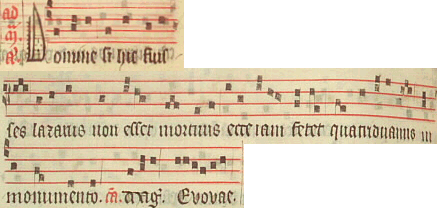 ad Domine si hic fuis
ses lazarus non esset mortuus ecce iam fetet quatriduanus in
monumento. Evovae.